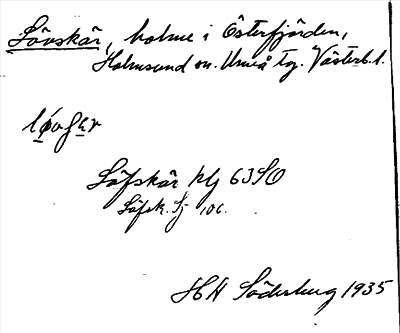 Lövskär, holme i Österfjärden,
Holmsund sn. Umeå tg. Västerb. l.
Löfskär klj 63SO
Löfsk. Sj 106.
HN Söderberg 1935